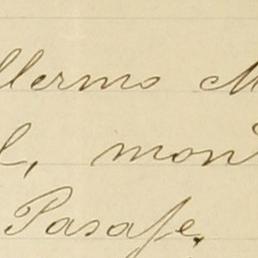 llermo M
l, mon
Pasaje.